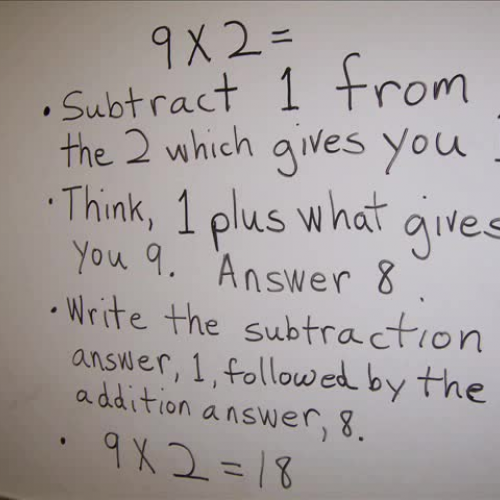 9 X 2 =
• Subtract 1 from
the 2 which gives you
• Think, 1 plus what gives
you 9. Answer 8
• Write the subtraction
answer, 1, followed by the
addition answer, 8.
• 9 X 2 = 18